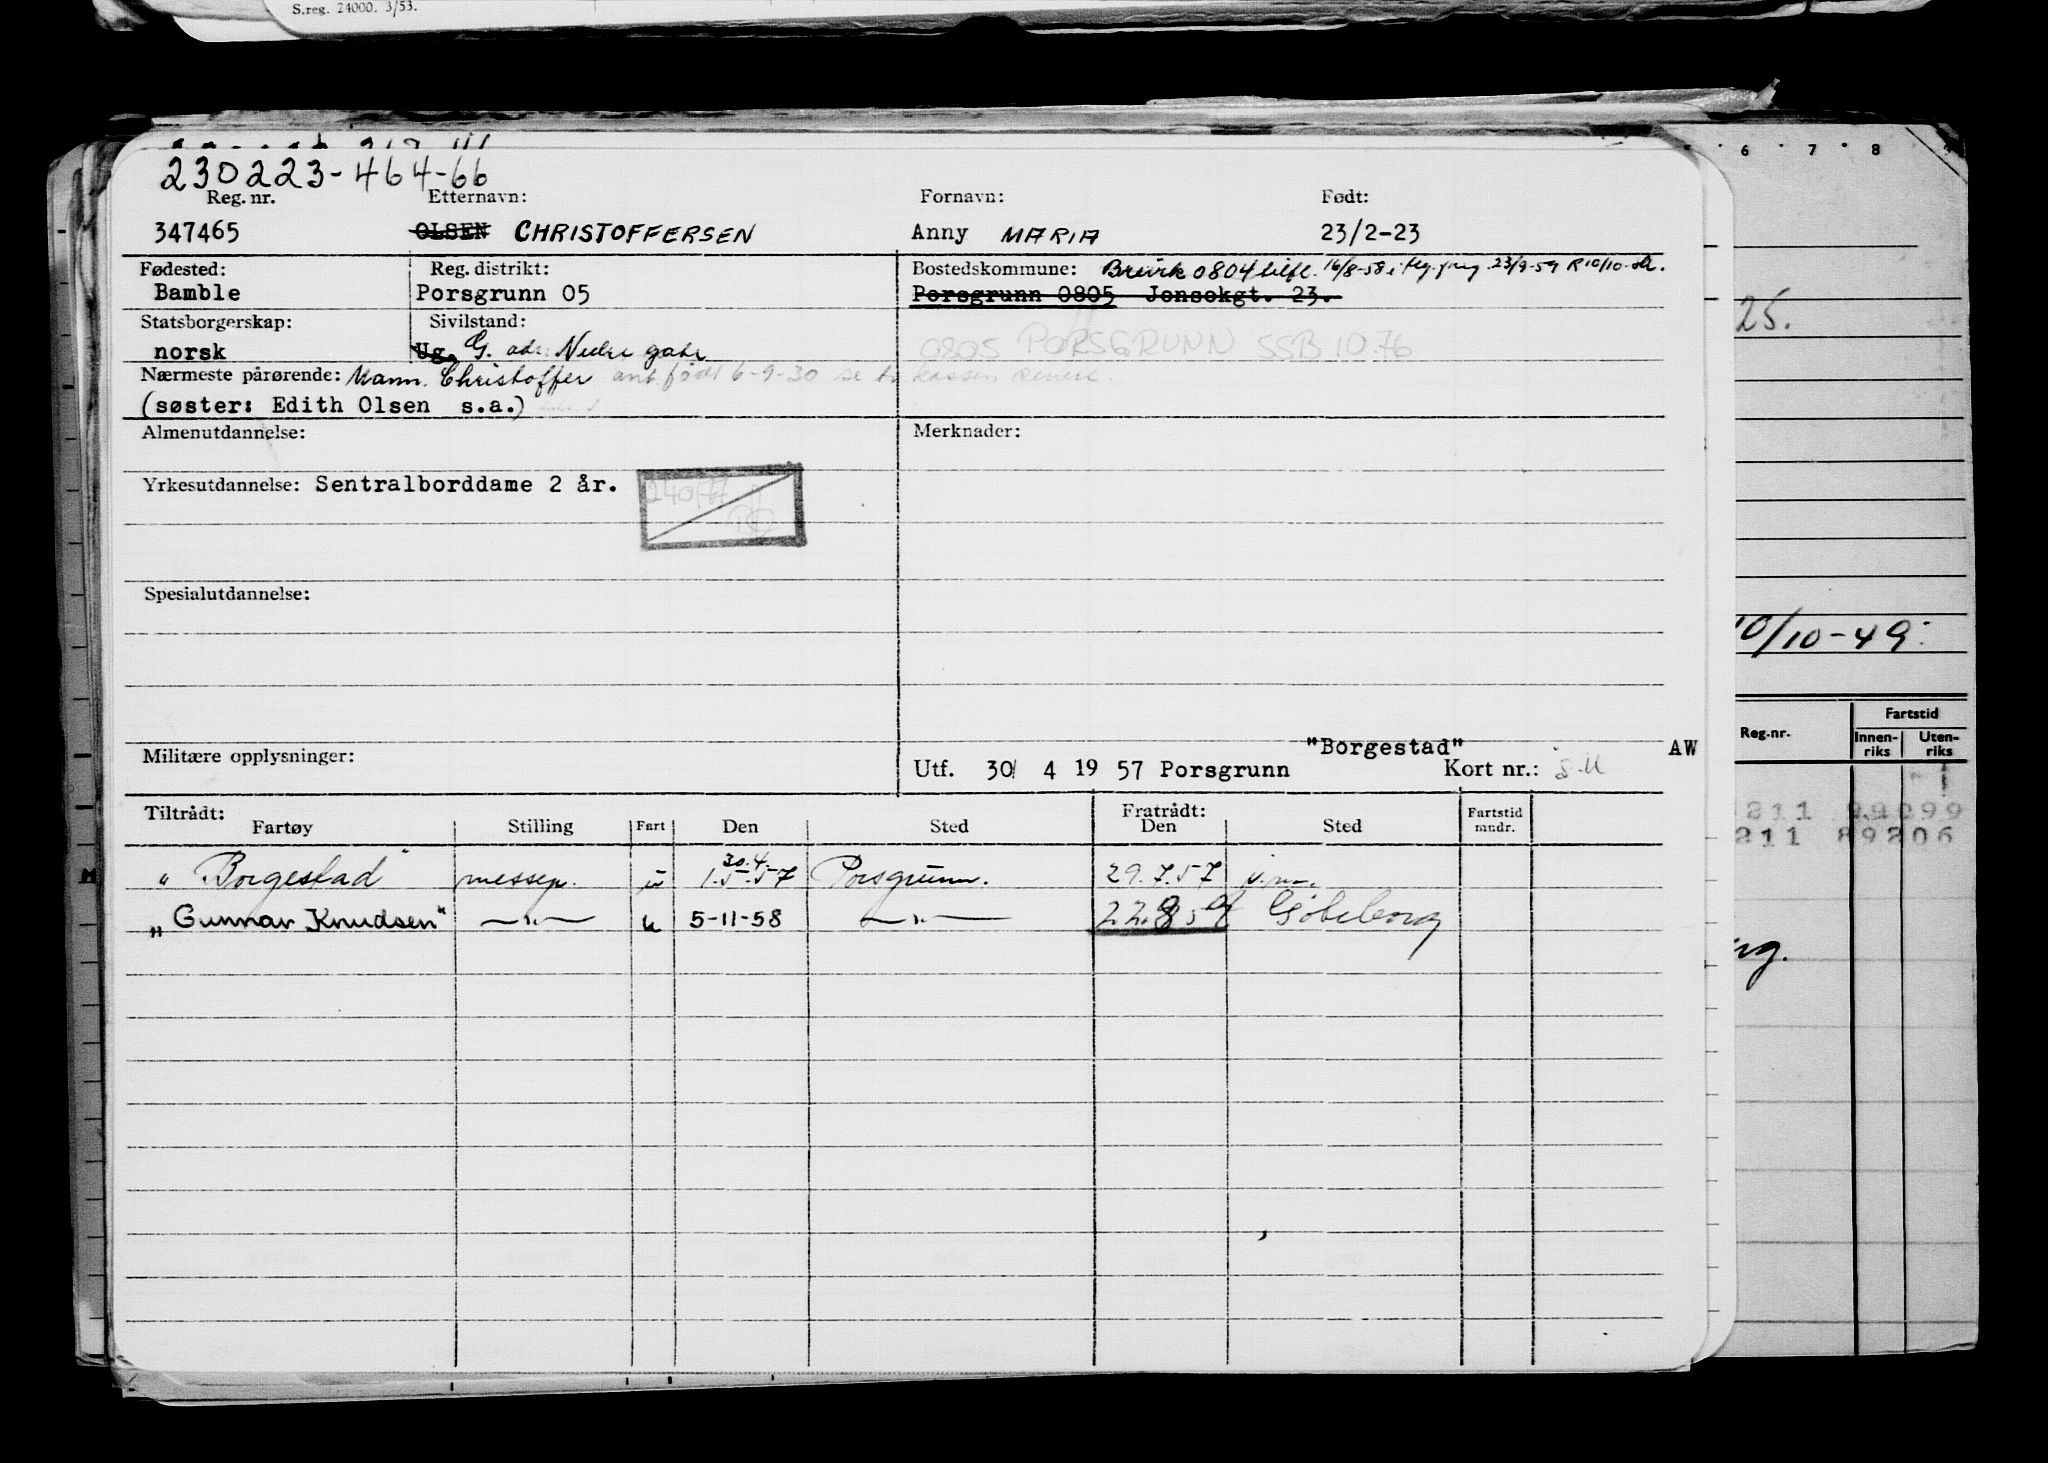 S.reg. 24000. 3/53.
230223-464-66
Reg. nr. Etternavn: Fornavn: Født:
347465 OLSEN CHRISTOFFERSEN Anny MARIA 23/2-23
Fødested: Reg. distrikt: Bostedskommune: Brevik 0804 tilfl. 16/8-58 23/9-59 R 10/10-
Bamble Porsgrunn 05 Porsgrunn 0805 Jonsokgt. 23.
Statsborgerskap: Sivilstand:
norsk Ug. G. adr: Nedre gate 0805 PORSGRUNN SSB 10.76
Nærmeste pårørende: Mann. Christoffer ant. født 6-9-30 se
(søster: Edith Olsen s.a.)
Almenutdannelse: Merknader:
Yrkesutdannelse: Sentralborddame 2 år.
Spesialutdannelse:
Militære opplysninger: "Borgestad" AW
Utf. 30/ 4 19 57 Porsgrunn Kort nr.:
Tiltrådt: Fratrådt: Fartstid
Fartøy Stilling Fart Den Sted Den Sted mndr.
30.4.
" Borgestad " messep. u 1.5.57 Porsgrunn. 29.7.57
„Gunnar Knudsen" —"— u 5-11-58 —"— 22.8 59 Göteborg
6 7 8
25.
10/10-49.
Reg.nr. Fartstid
Innen- Uten-
riks riks
211
211 89206